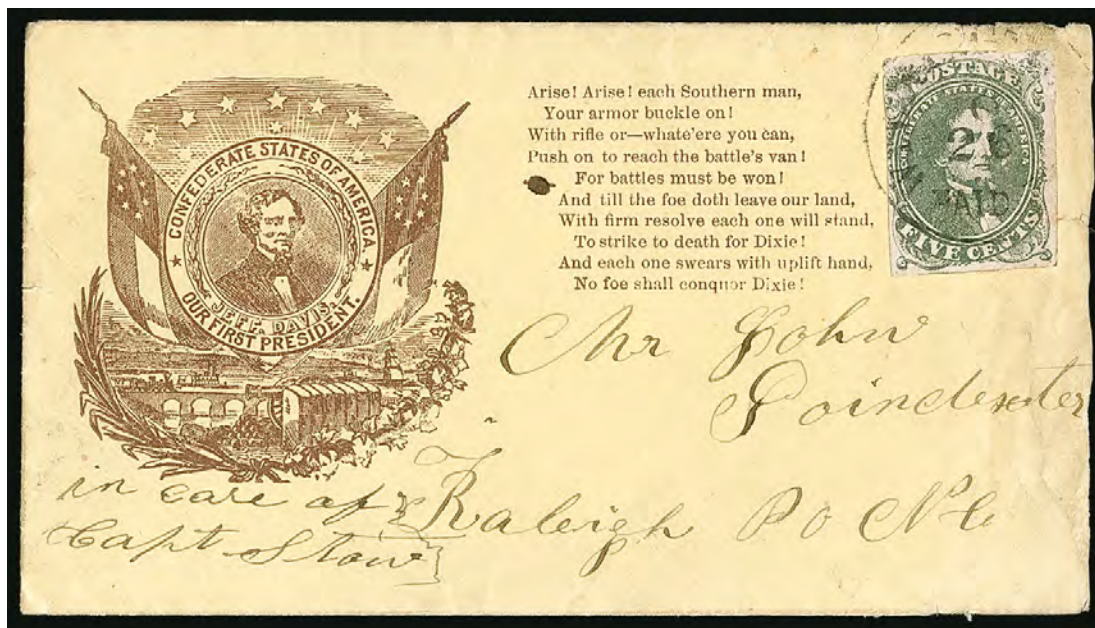 CONFEDERATE STATES OF AMERICA.
JEFF. DAVIS.
OUR FIRST PRESIDENT.
Arise! Arise! each Southern man,
Your armor buckle on!
With rifle or—whate'ere you can,
Push on to reach the battle's van!
For battles must be won!
And till the foe doth leave our land,
With firm resolve each one will stand,
To strike to death for Dixie!
And each one swears with uplift hand,
No foe shall conquor Dixie!
POSTAGE
CONFEDERATE STATES OF AMERICA
FIVE CENTS
26
PAID
Mr John
Poindexter
Raleigh Po N C
in care of
Capt Stow